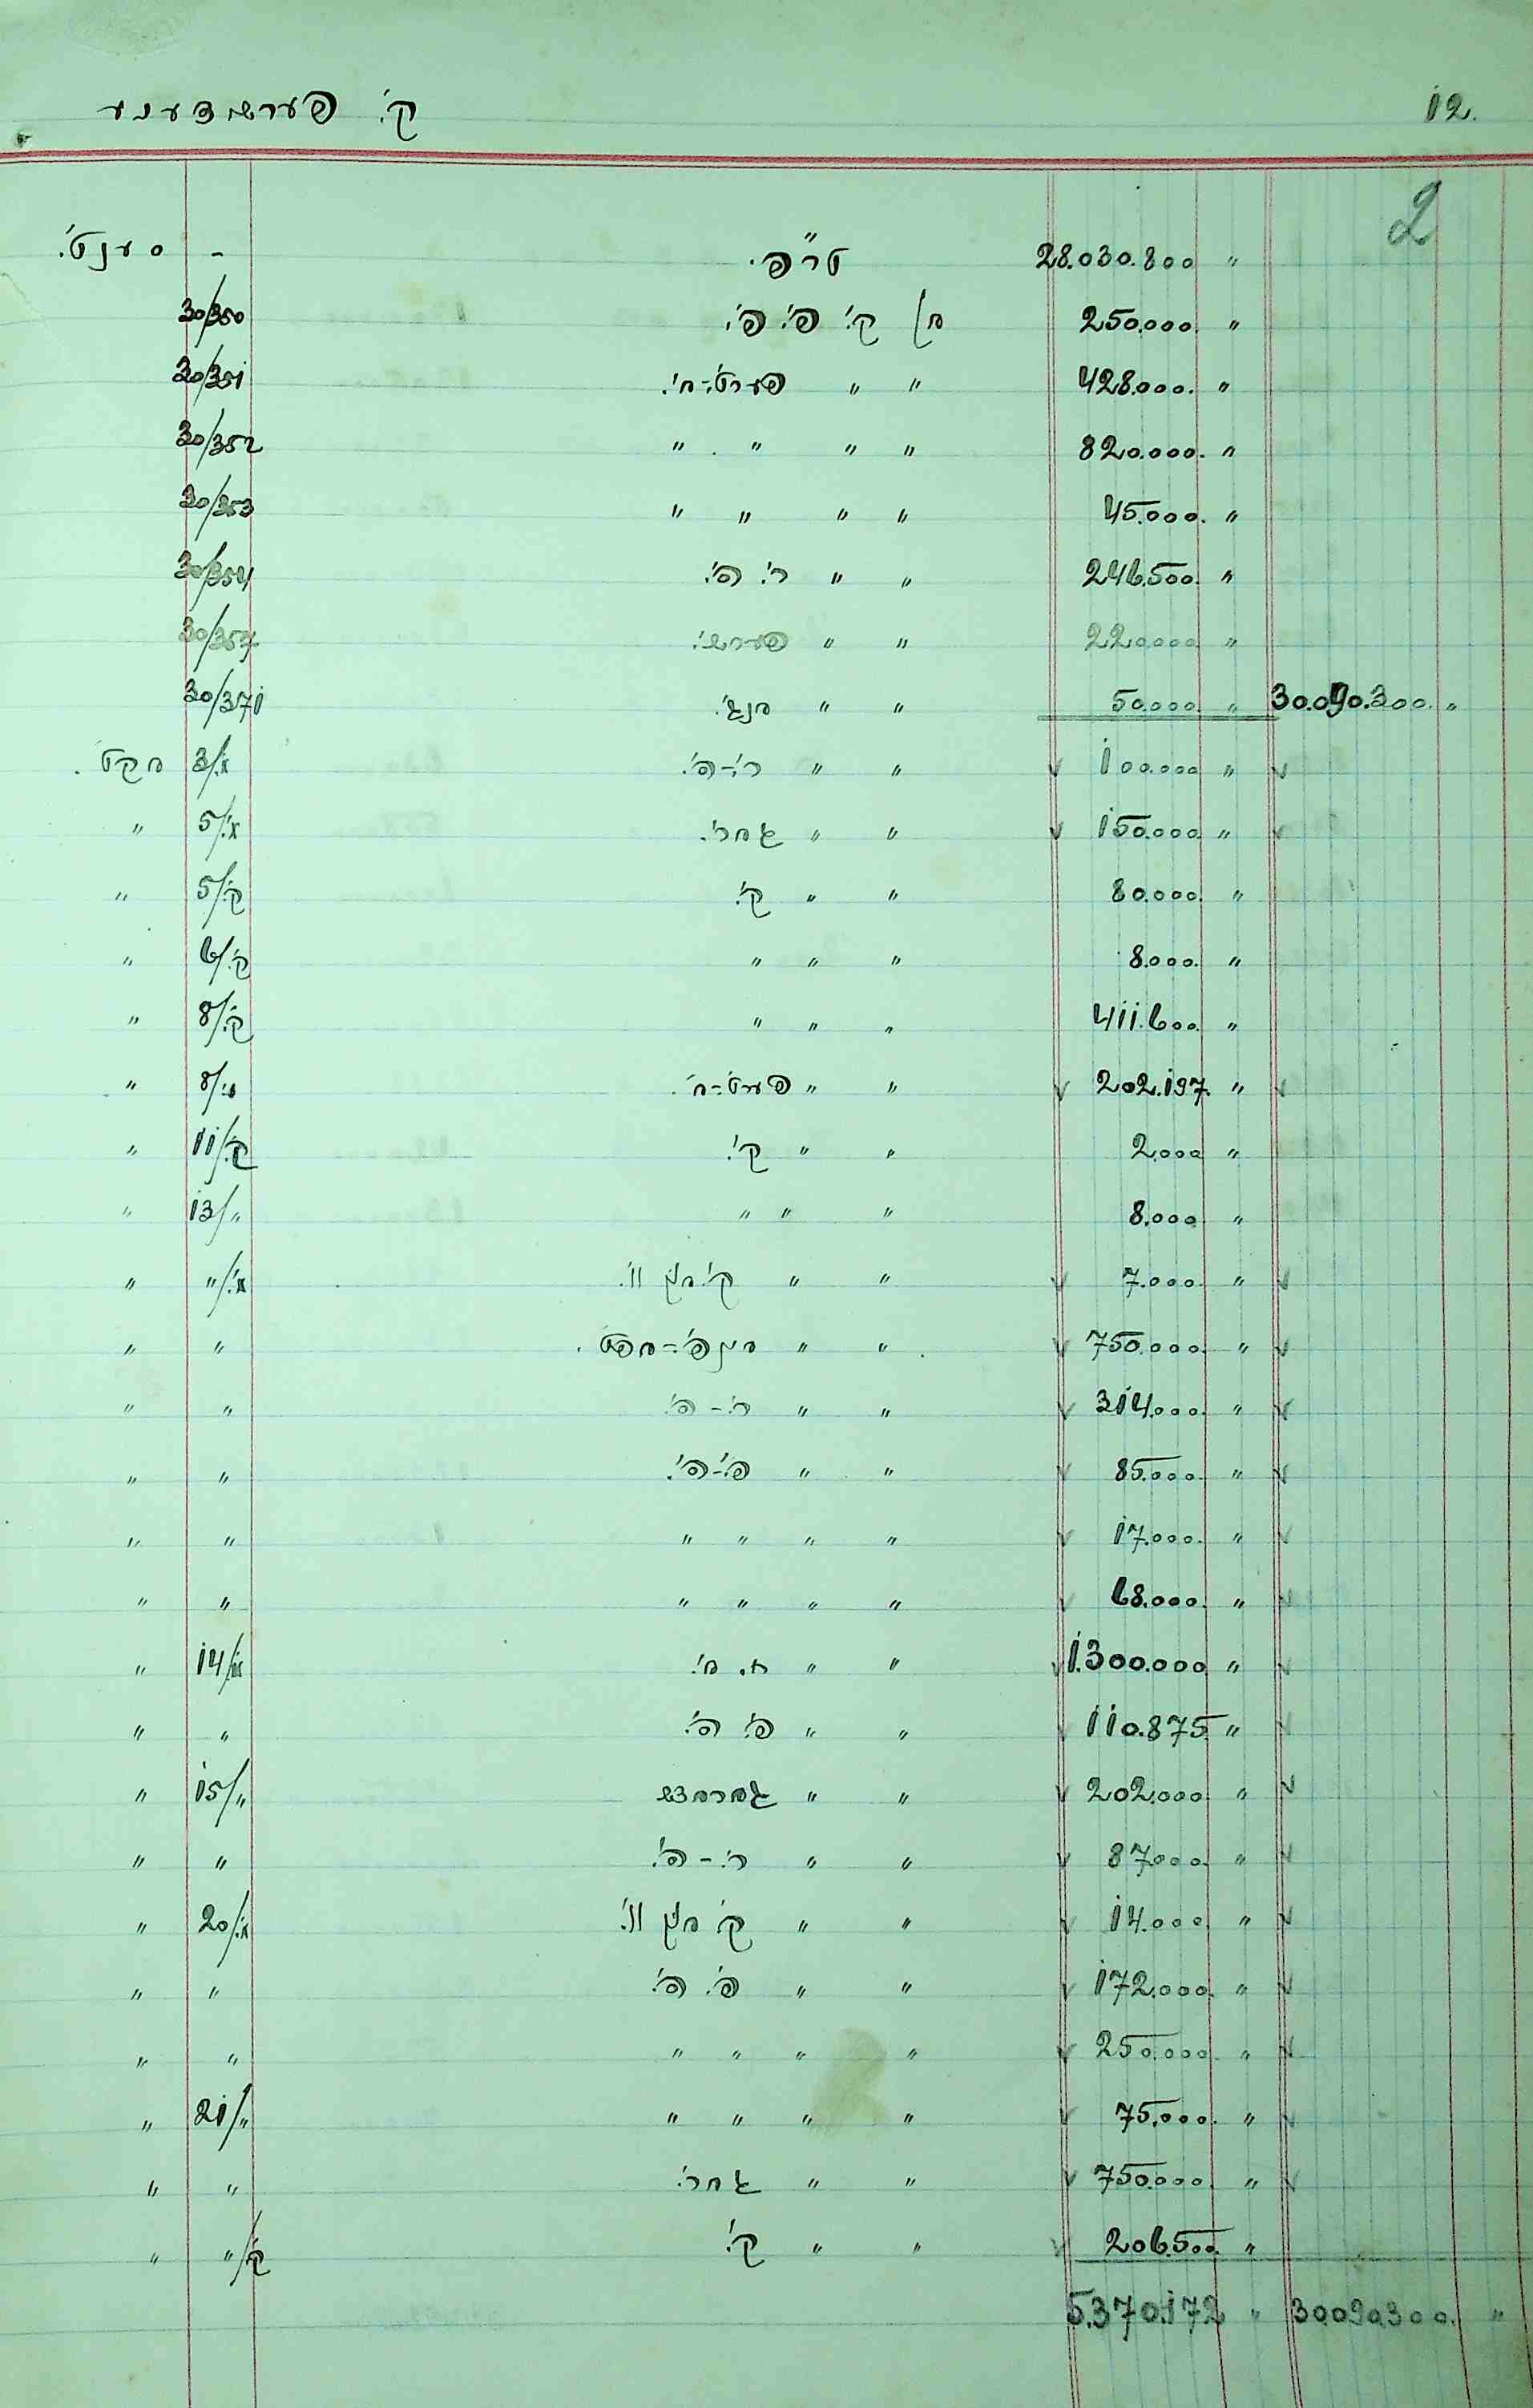 ק'. פערשידענע 12.
2
סענט'. - טר"פ. 28.030.800 "
30/350 א) ק'. פ'. פ'. 250.000. "
30/351 " " פערט'-א'. 428.000. "
30/352 " " " " 820.000. "
30/353 " " " " 45.000. "
30/354 " " ר'. ס'. 246.500. "
30/357 " " פערש'. 220.000 "
30/371 " " 50.000. " 30.090.300. "
אקט. 3/x " " ר'-ס'. √ 100.000 " √
" 5/x " " גאר'. √ 150.000 " √
" 5/ק'. " " ק'. 80.000. "
" 6/ק'. " " " 8.000. "
" 8/ק'. " " " 411.600. "
" 8/x " " פערט'-א'. √ 202.197. " √
" 11/ק'. " " ק'. 2.000 "
" 13/" " " " 8.000 "
" "/x " " √ 7.000. " √
" " " " √ 750.000. " √
" " " " ר'-ס'. √ 314.000. " √
" " " " פ'-ס'. √ 85.000. " √
" " " " " " √ 17.000. " √
" " " " " " √ 68.000. " √
" 14/x " " √ 1.300.000 " √
" " " " פ'. ס'. √ 110.875. " √
" 15/" " " גאראדש √ 202.000. " √
" " " " ר'.-ס'. √ 87.000. " √
" 20/x " " √ 14.000. " √
" " " " פ'. ס'. √ 172.000. " √
" " " " " " √ 250.000. " √
" 21/" " " " " √ 75.000. " √
" " " " גאר'. √ 750.000. " √
" "/ק'. " " ק'. √ 206.500. "
5.370.172 " 30.090.300. "